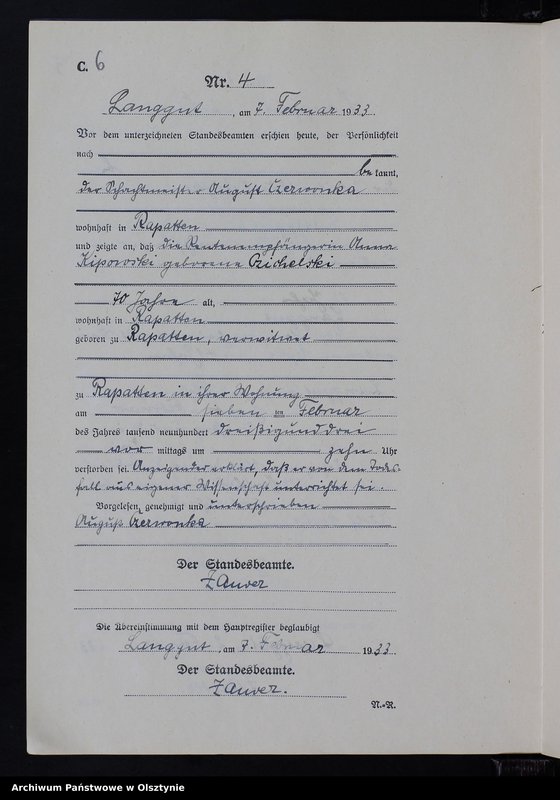 C. 6
Nr. 4
Langgut, am 7. Februar 1933.
Vor dem unterzeichneten Standesbeamten erschien heute, der Persönlichkeit
nach
be kannt,
der Schachtmeister August Czerwonka
wohnhaft in Rapatten
und zeigte an, daß die Rentenempfängerin Anna
Kiposki geborene Czichelski
70 Jahre alt,
wohnhaft in Rapatten
geboren zu Rapatten, verwitwet
zu Rapatten in ihrer Wohnung
am sieben ten Februar
des Jahres tausend neunhundert dreißigunddrei
vor mittags um zehn Uhr
verstorben sei. Anzeigender erklärt, daß er von dem Todes-
fall aus eigener Wissenschaft unterrichtet sei.
Vorgelesen, genehmigt und unterschrieben
August Czerwonka
Der Standesbeamte.
Die Übereinstimmung mit dem Hauptregister beglaubigt
Langgut, am 7. Februar 1933.
Der Standesbeamte.
N.-R.
Archiwum Państwowe w Olsztynie